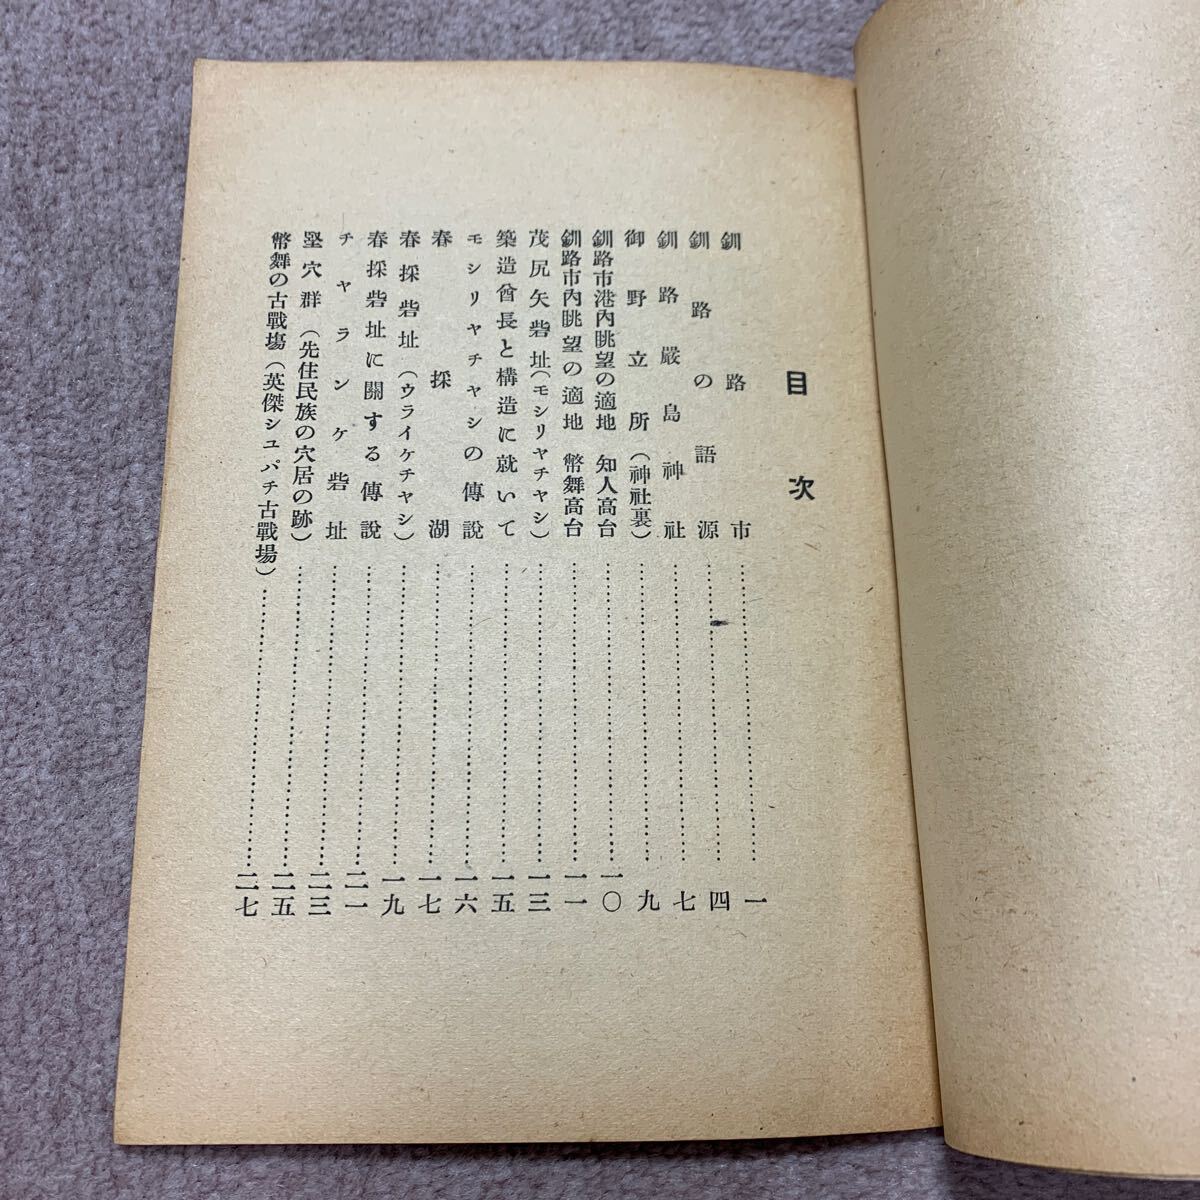 目次
釧路市……一
釧路の語源……四
釧路嚴島神社……七
御野立所（神社裏）……九
釧路市港內眺望の適地　知人高台……一〇
釧路市內眺望の適地　幣舞高台……一一
茂尻矢砦址（モシリヤチヤシ）……一三
築造酋長と構造に就いて……一五
モシリヤチヤシの傳說……一六
春採湖……一七
春採砦址（ウライケチヤシ）……一九
春採砦址に關する傳說……二一
チヤランケ砦址……二三
竪穴群（先住民族の穴居の跡）……二五
幣舞の古戰塲（英傑シユパチ古戰場）……二七